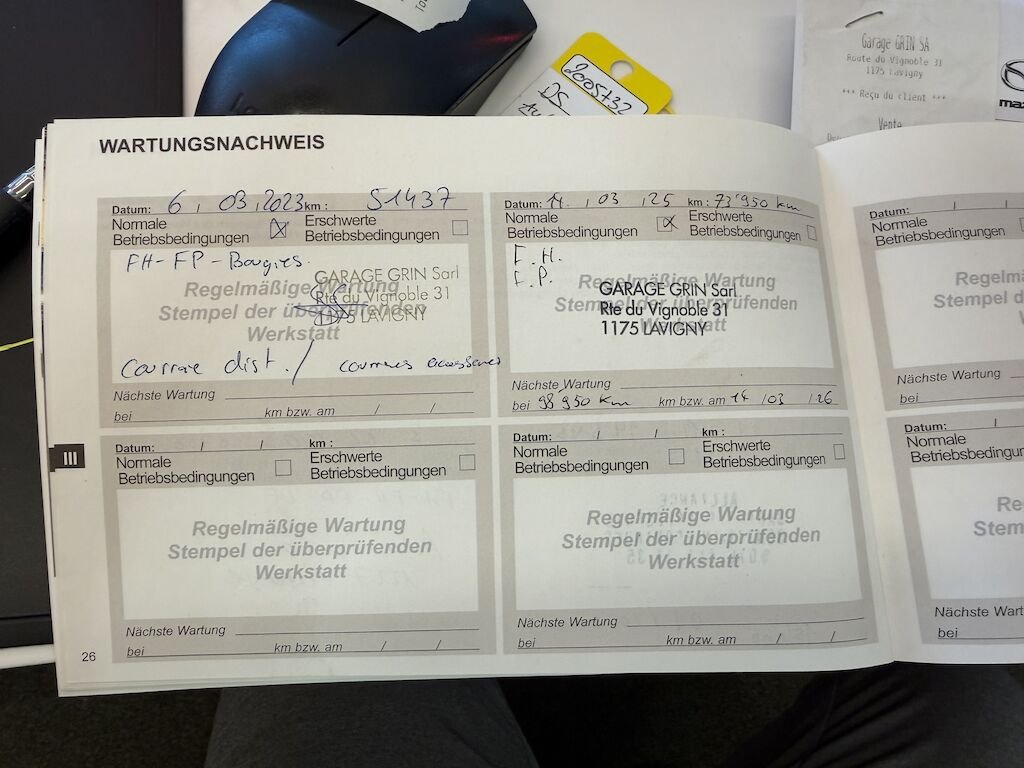 2005732
DS
Garage GRIN SA
Route du Vignoble 31
1175 Lavigny
*** Reçu du client ***
Vente
mazda
WARTUNGSNACHWEIS
Datum: 6 / 03 / 2023 km : 51437
Normale Betriebsbedingungen ☒ Erschwerte Betriebsbedingungen ☐
FH-FP-Bougies.
Regelmäßige Wartung
Stempel der überprüfenden
Werkstatt
GARAGE GRIN Sarl
Rte du Vignoble 31
1175 LAVIGNY
Courroie dist. / courroies accessoires
Nächste Wartung
bei km bzw. am / /
Datum: 14 / 03 / 25 km : 73'950 km
Normale Betriebsbedingungen ☒ Erschwerte Betriebsbedingungen ☐
F.H.
F.P.
Regelmäßige Wartung
Stempel der überprüfenden
Werkstatt
GARAGE GRIN Sarl
Rte du Vignoble 31
1175 LAVIGNY
Nächste Wartung
bei 98 950 km km bzw. am 14 / 03 / 26
Datum: / /
Normale
Betriebsbedingungen
Nächste Wartung
bei
III
Datum: / / km :
Normale Betriebsbedingungen ☐ Erschwerte Betriebsbedingungen ☐
Regelmäßige Wartung
Stempel der überprüfenden
Werkstatt
Nächste Wartung
bei km bzw. am / /
Datum: / / km :
Normale Betriebsbedingungen ☐ Erschwerte Betriebsbedingungen ☐
Regelmäßige Wartung
Stempel der überprüfenden
Werkstatt
Nächste Wartung
bei km bzw. am / /
Datum: /
Normale
Nächste Wartung
bei
26